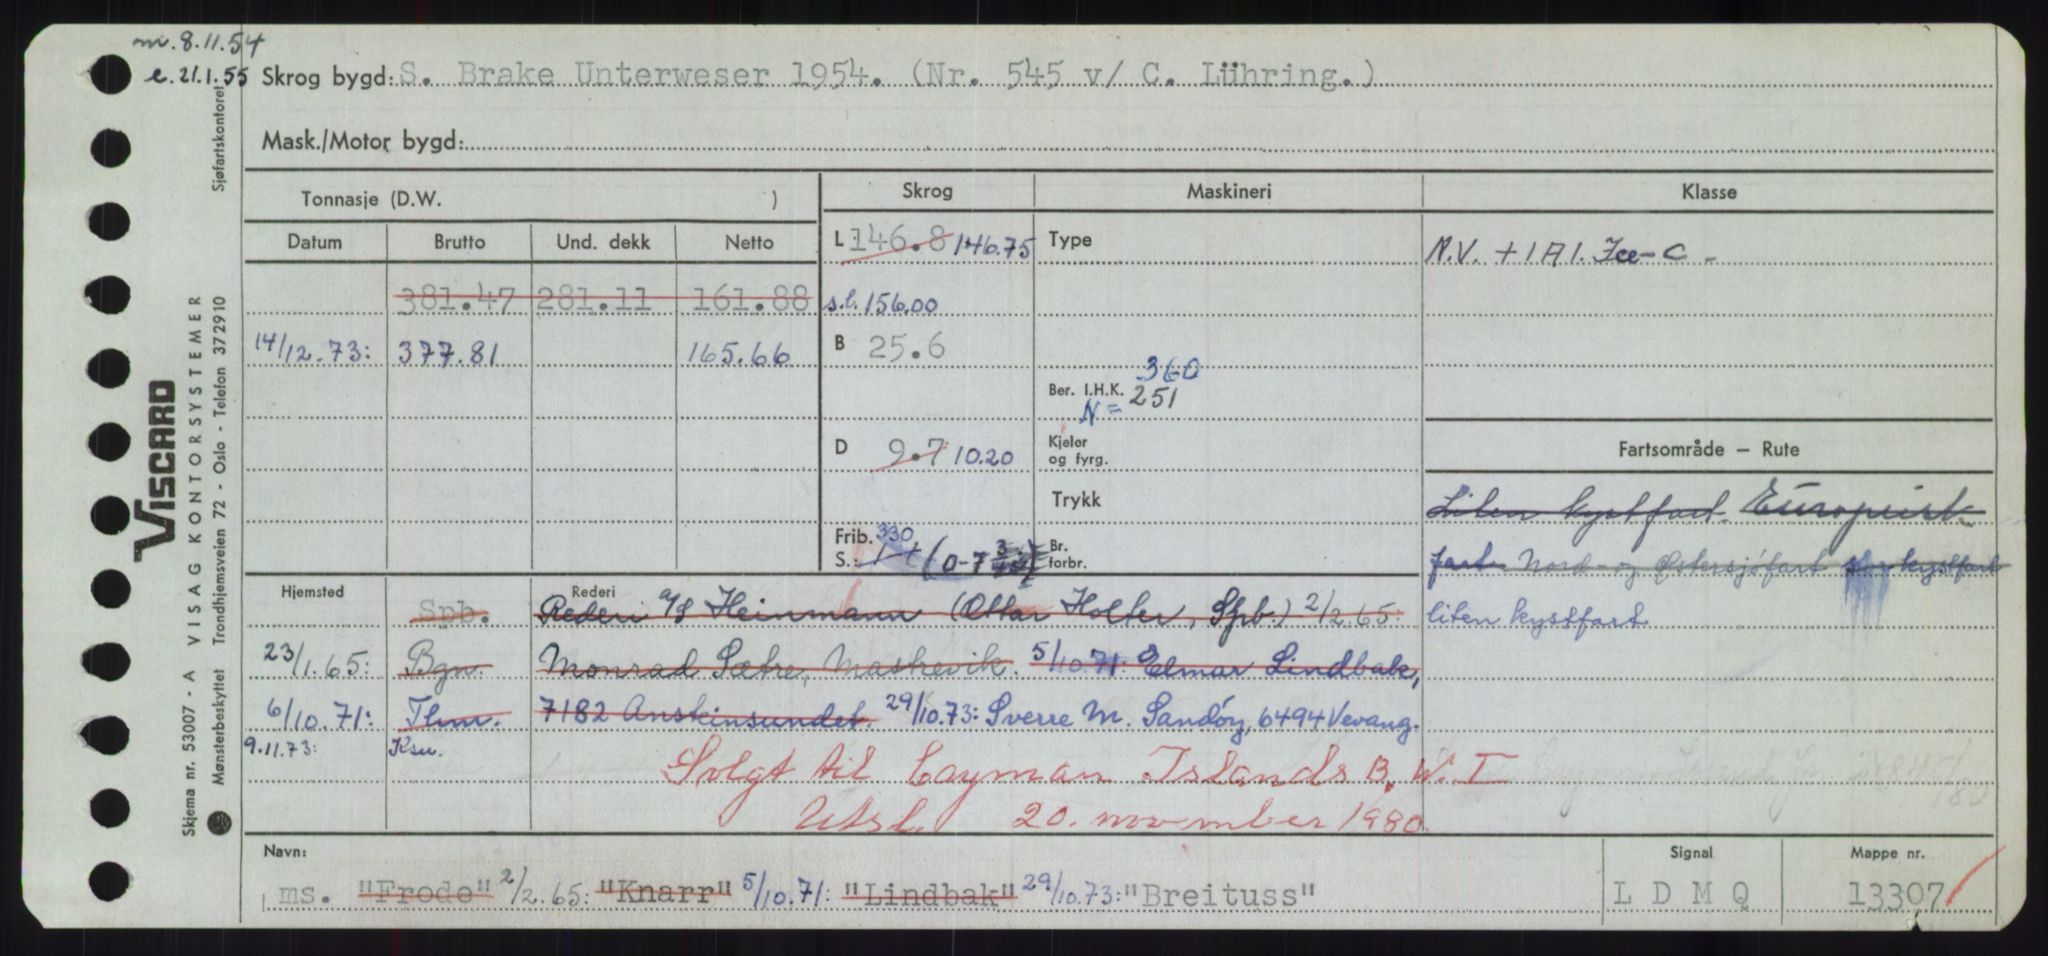 m. 8.11.54
e. 21.1.55 Skrog bygd: S. Brake Unterweser 1954. (Nr. 545 v/ C. Lühring.)
Mask./Motor bygd:
Tonnasje (D.W. )
Skrog Maskineri Klasse
Datum Brutto Und. dekk Netto
L 146.8 146.75 Type N.V. + 1 A 1. Ice-C -
381.47 281.11 161.88 s.l. 156.00
14/12.73: 377.81 165.66 B 25.6
360
Ber. I.H.K. 251
N =
D 9.7 10.20 Kjeler og fyrg.
Fartsområde — Rute
Trykk
Liten kystfart. Europeisk
Frib. 330
S.: (0-7 Br. forbr.
fart Nord- og Østersjøfart stor kystfart
Hjemsted Rederi
Spb. Rederi A/S Heinmann (Ottar Holter, Spb.) 2/2.65:
liten kystfart
23/1.65: Bgn. Monrad Sætre, Mastrevik. 5/10.71. Elmar Lindbak,
6/10.71: Thm. 7182 Ansteinsundet. 29/10.73: Sverre M. Sandöy, 6494 Vevang.
9.11.73: Ksu.
Solgt til Cayman Islands B.W.I
Utsl. 20. november 1980.
Navn: Signal Mappe nr.
ms. "Frode" 2/2.65: "Knarr" 5/10.71: "Lindbak" 29/10.73: "Breituss" L D M Q 13307
VISCARD
Skjema nr. 53007 - A VISAG KONTORSYSTEMER
Mønsterbeskyttet Trondhjemsveien 72 - Oslo - Telefon 372910 Sjøfartskontoret